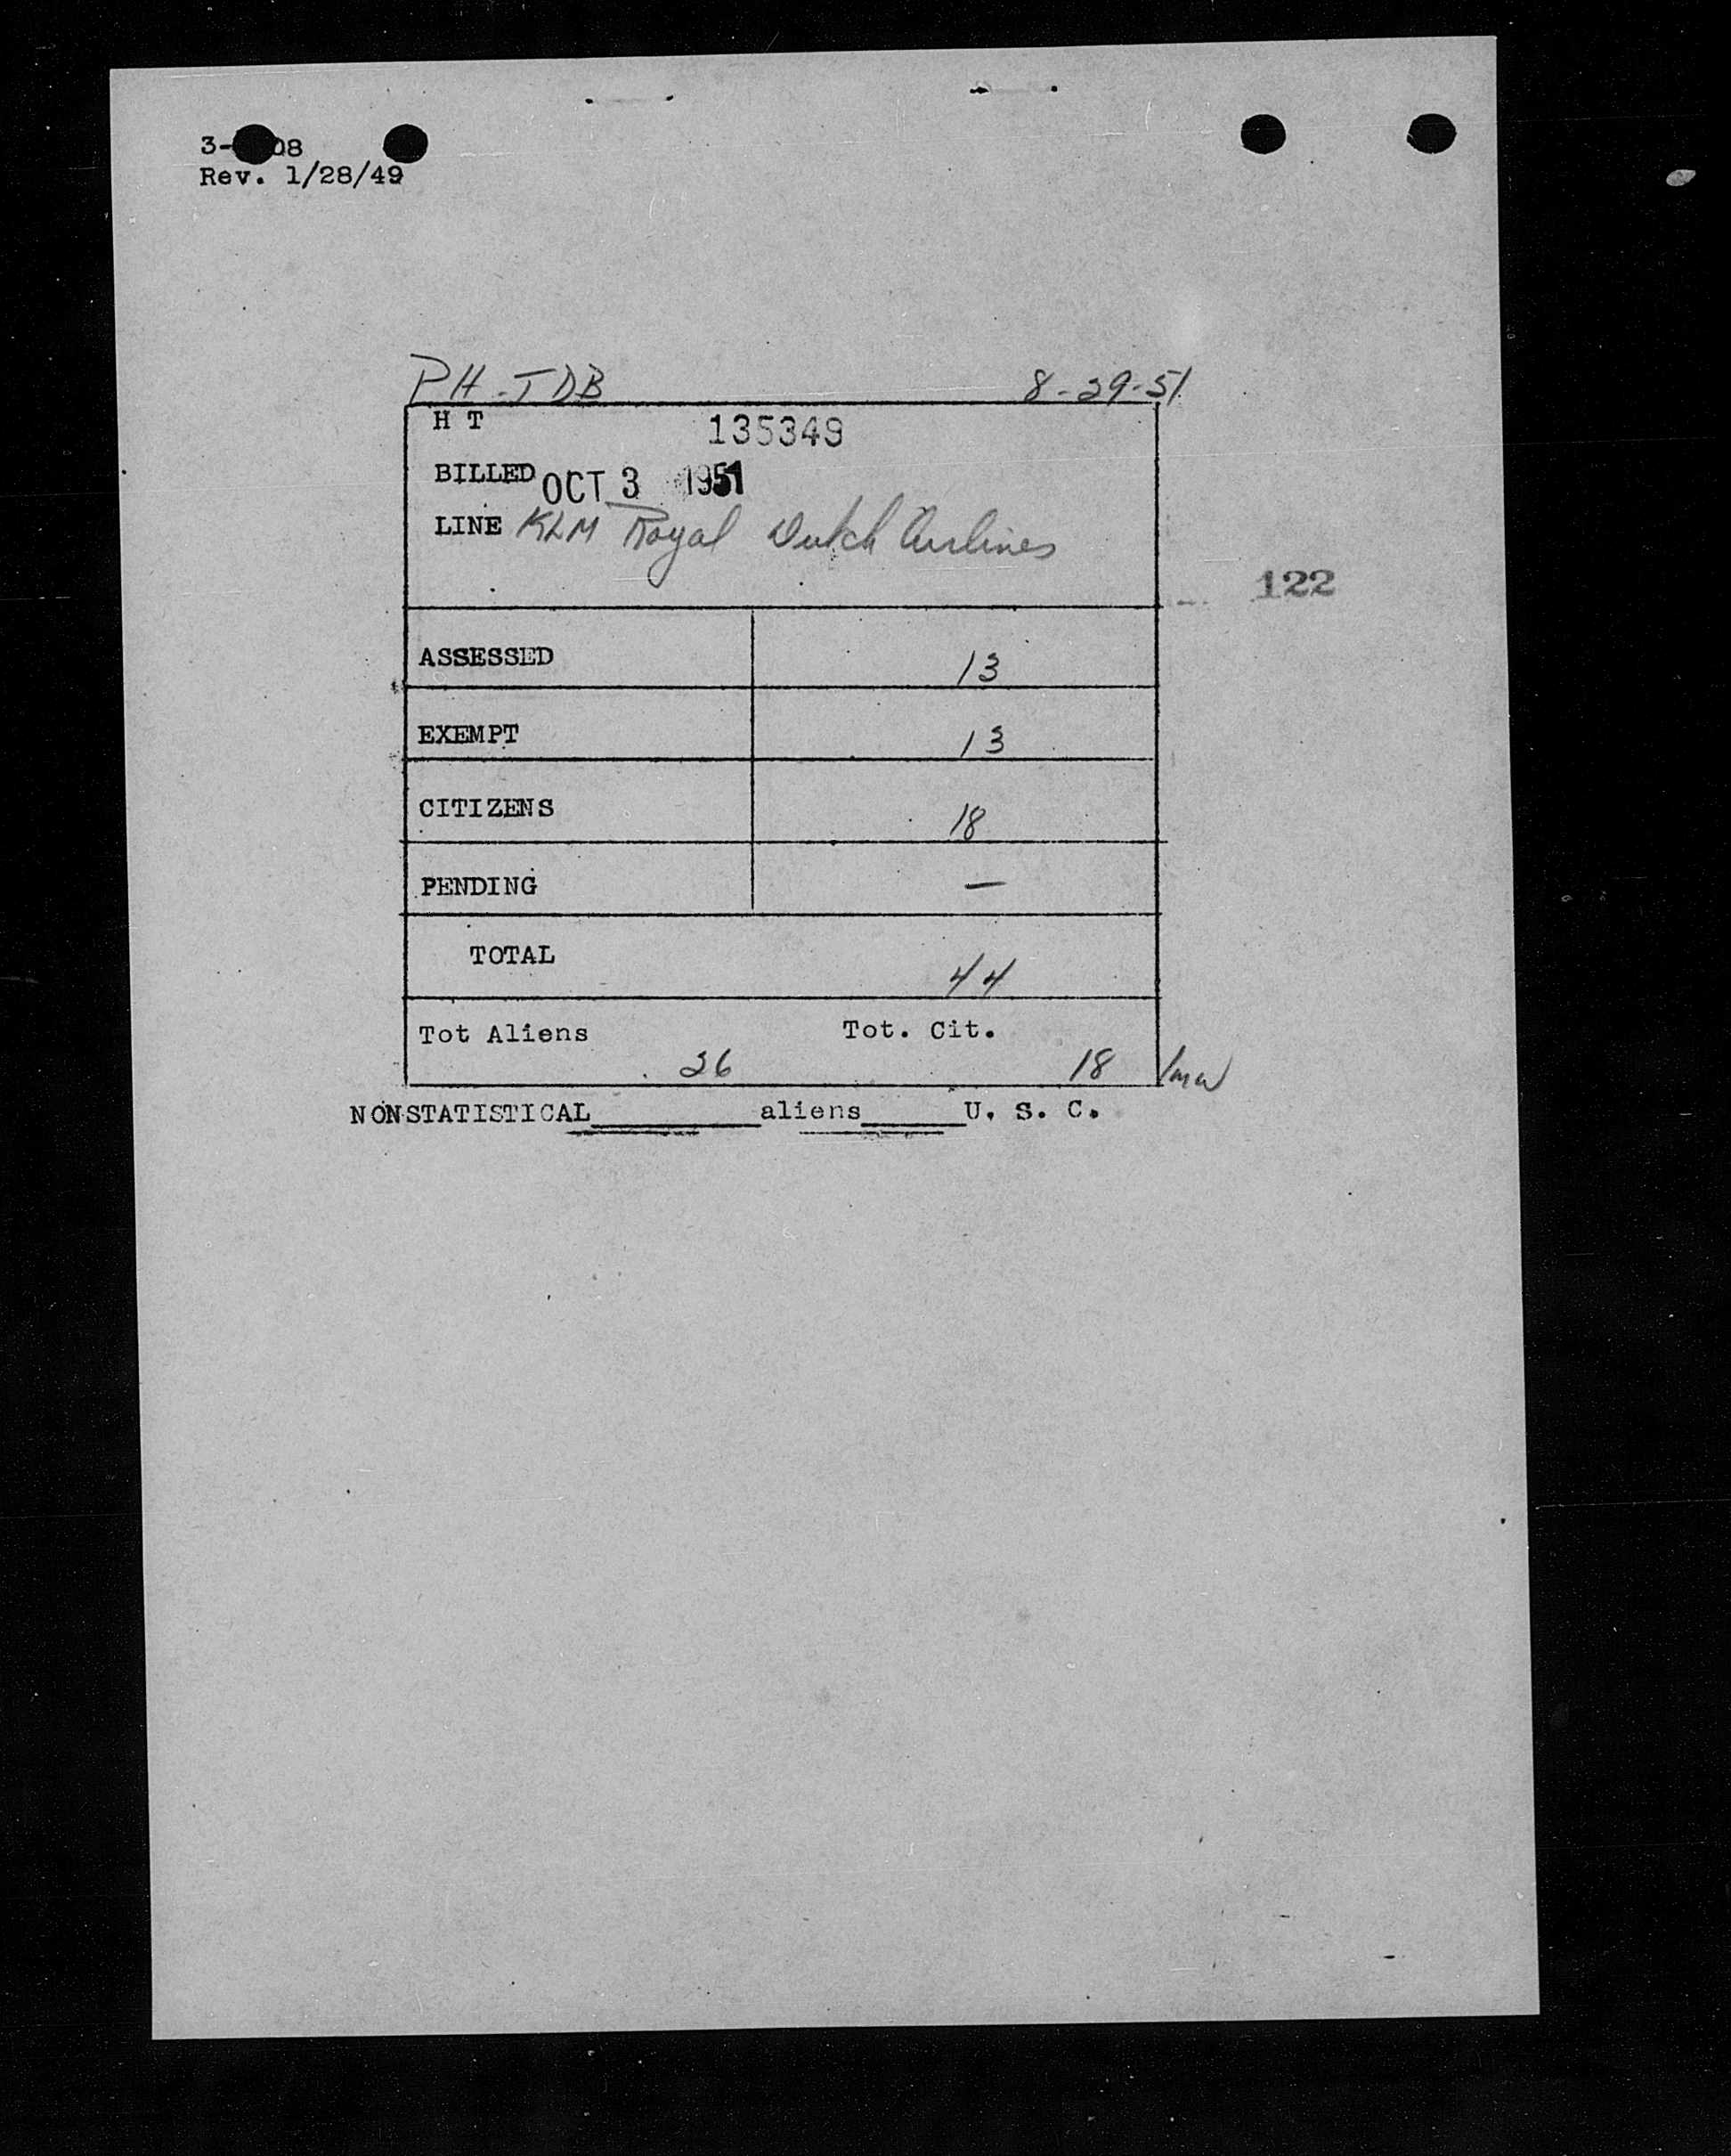 3-  08
Rev. 1/28/49
PH-TDB 8-29-51
H T 135349
BILLED OCT 3 1951
LINE KLM Royal Dutch Airlines
122
ASSESSED 13
EXEMPT 13
CITIZENS 18
PENDING —
TOTAL 44
Tot Aliens Tot. Cit.
26 18
NONSTATISTICAL______aliens____U. S. C.